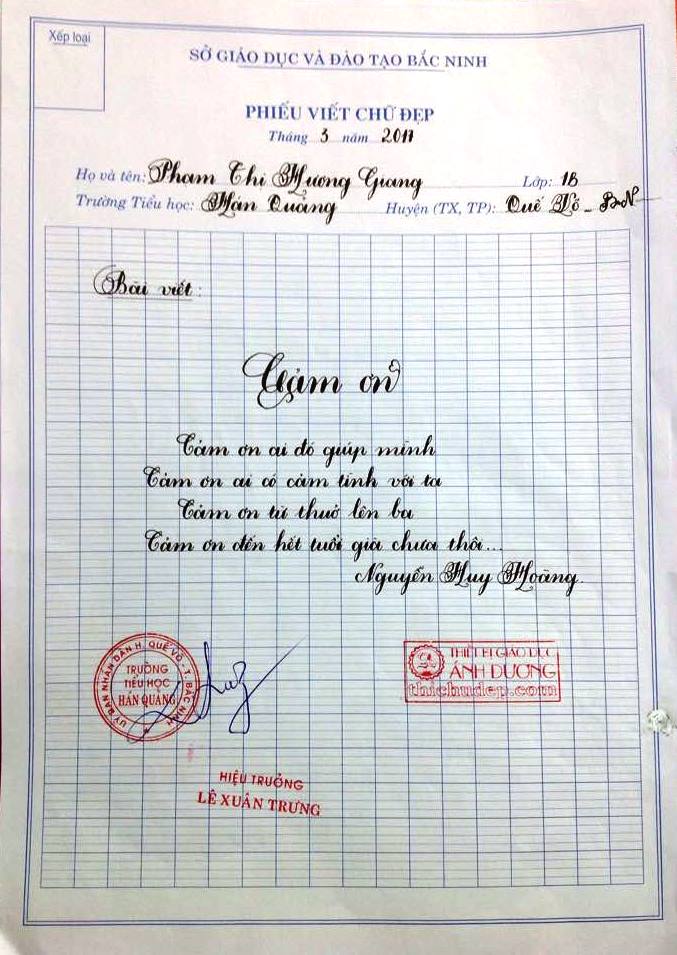 Xếp loại
SỞ GIÁO DỤC VÀ ĐÀO TẠO BẮC NINH
PHIẾU VIẾT CHỮ ĐẸP
Tháng 3 năm 2017
Họ và tên: Phạm Thị Hương Giang Lớp: 1B
Trường Tiểu học: Hán Quảng Huyện (TX, TP): Quế Võ - BN
Bài viết:
Cảm ơn
Cảm ơn ai đó giúp mình
Cảm ơn ai có cảm tình với ta
Cảm ơn từ thuở lên ba
Cảm ơn đến hết tuổi già chưa thôi...
Nguyễn Huy Hoàng.
ỦY BAN NHÂN DÂN H. QUẾ VÕ - T. BẮC NINH
TRƯỜNG
TIỂU HỌC
HÁN QUẢNG
THIẾT BỊ GIÁO DỤC
ÁNH DƯƠNG
thichudep.com
HIỆU TRƯỞNG
LÊ XUÂN TRƯNG